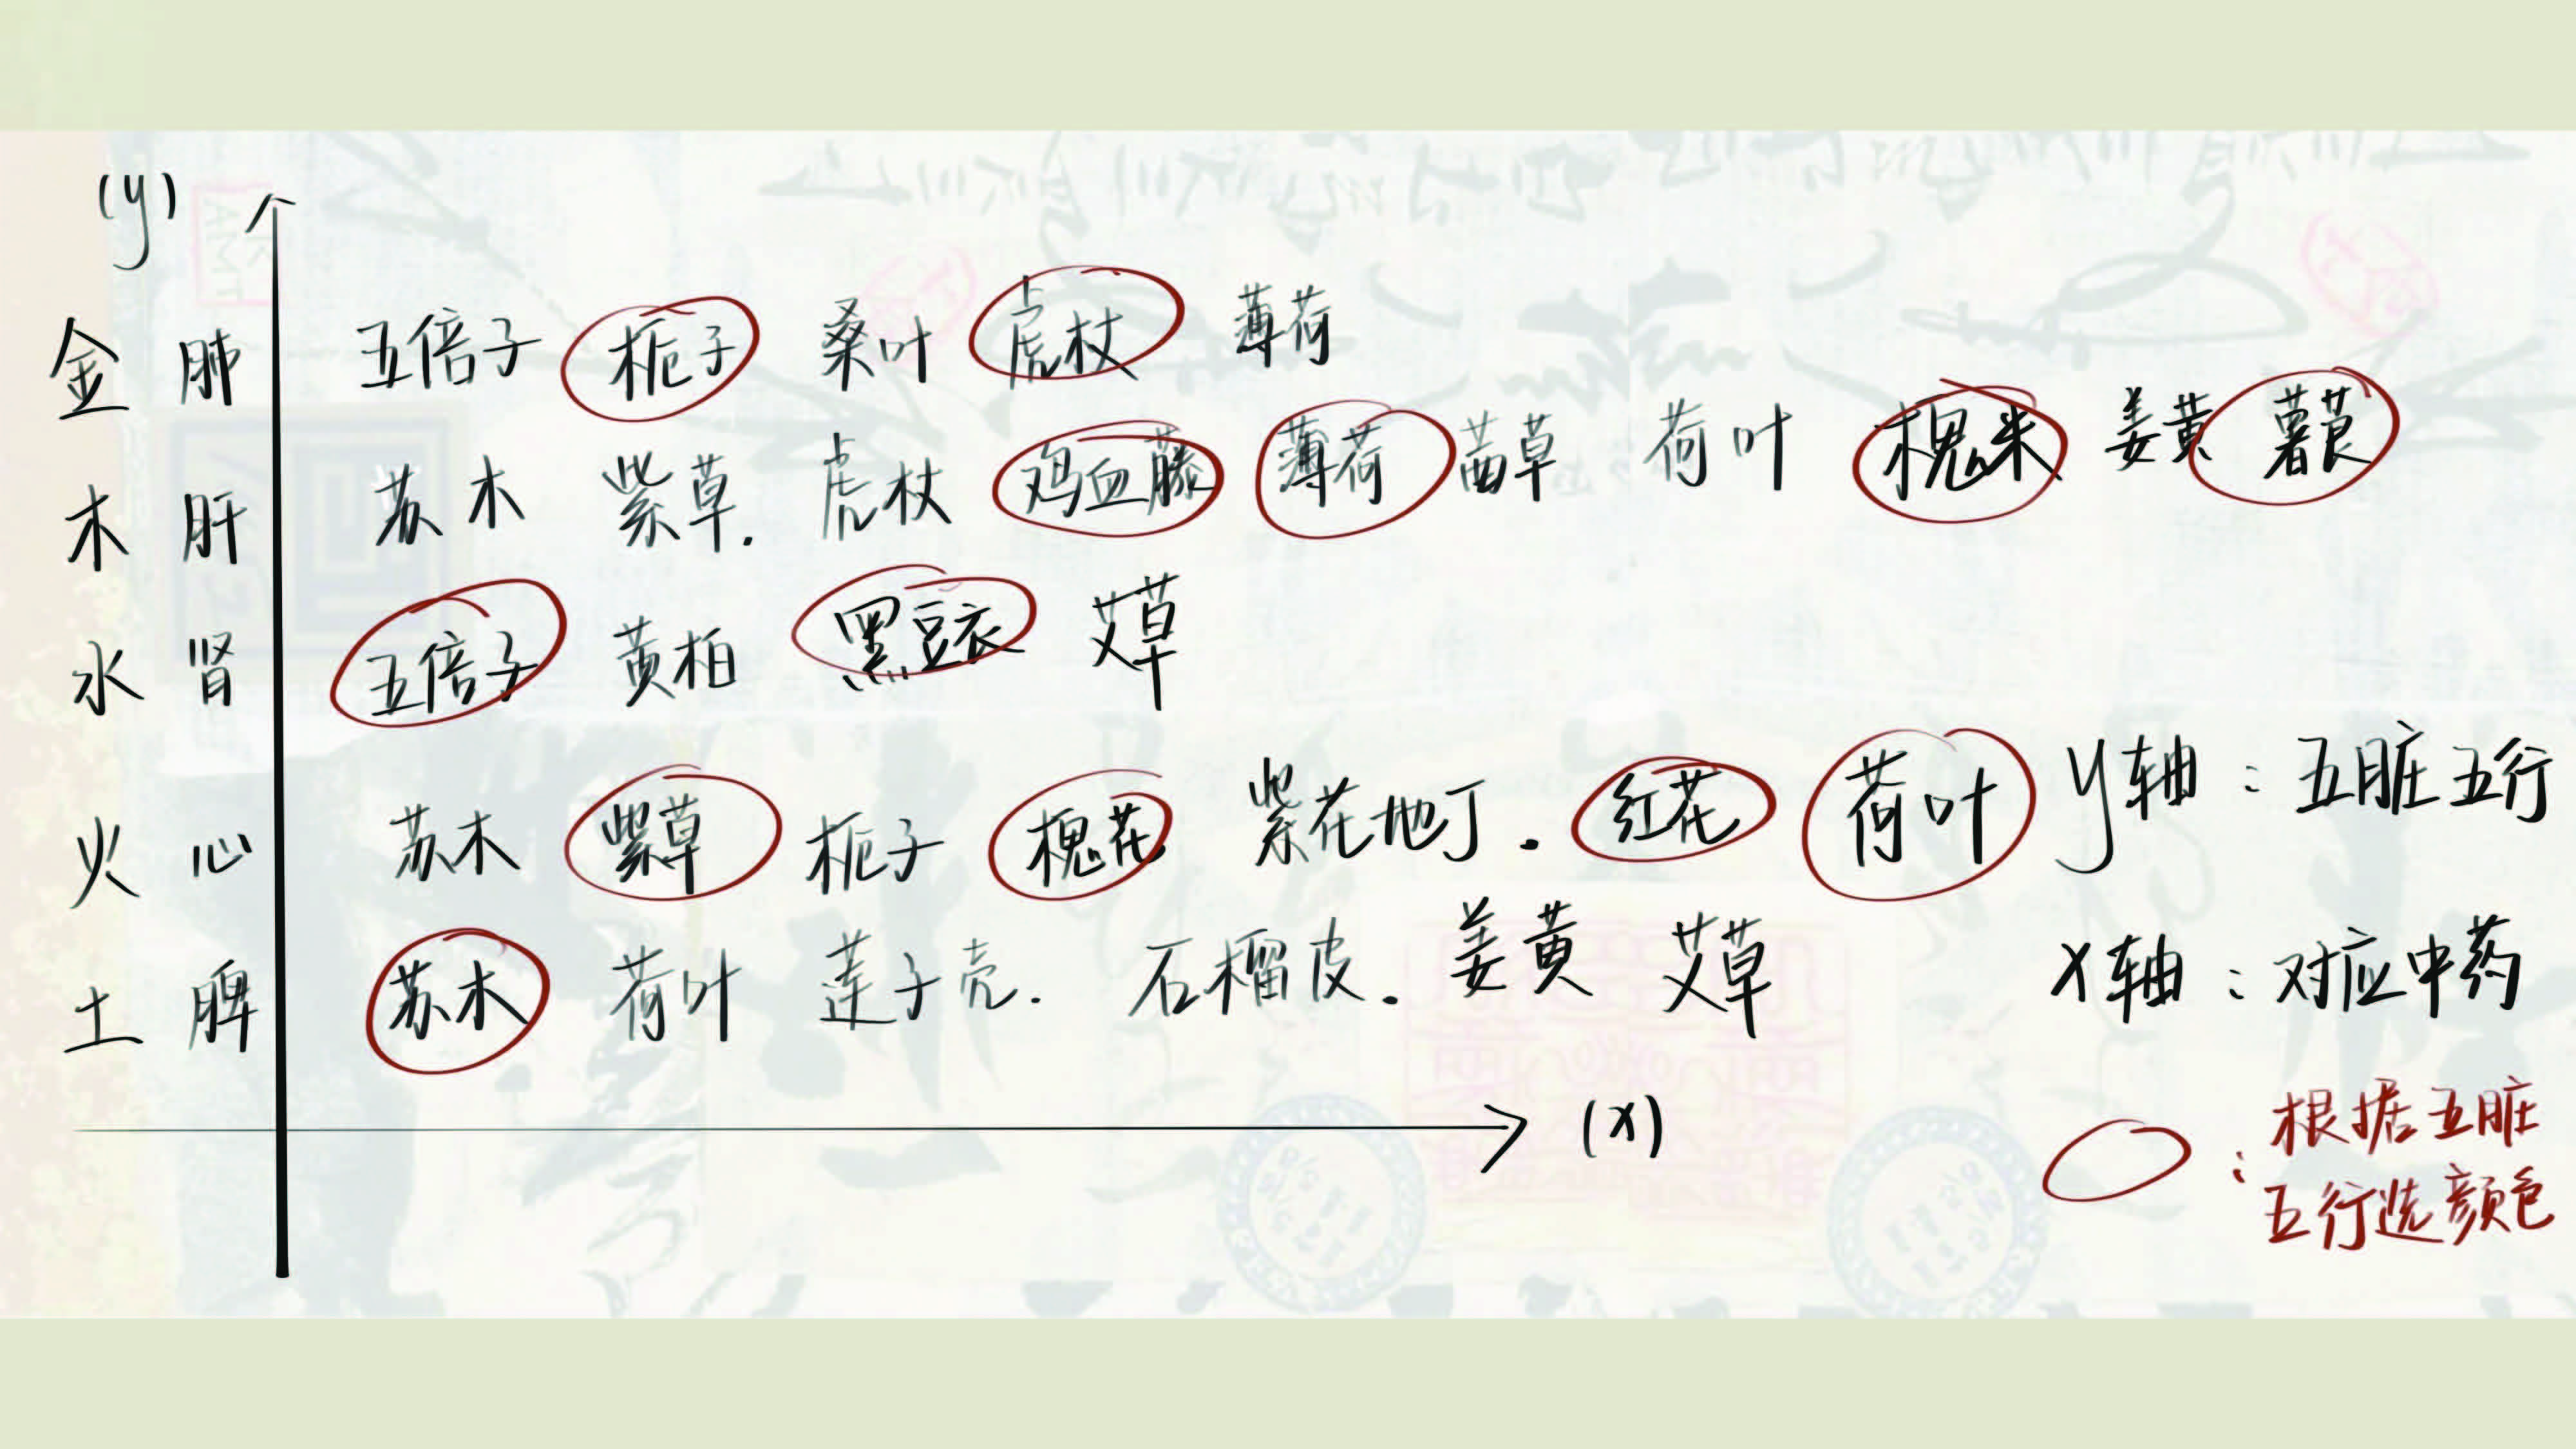 (y)
金 肺 五倍子 栀子 桑叶 虎杖 薄荷
木 肝 苏木 紫草. 虎杖 鸡血藤 薄荷 茜草 荷叶 槐米 姜黄 薯莨
水 肾 五倍子 黄柏 黑豆衣 艾草
火 心 苏木 紫草 栀子 槐花 紫花地丁. 红花 荷叶
土 脾 苏木 荷叶 莲子壳. 石榴皮. 姜黄 艾草
(x)
y轴：五脏五行
x轴：对应中药
：根据五脏
五行选颜色